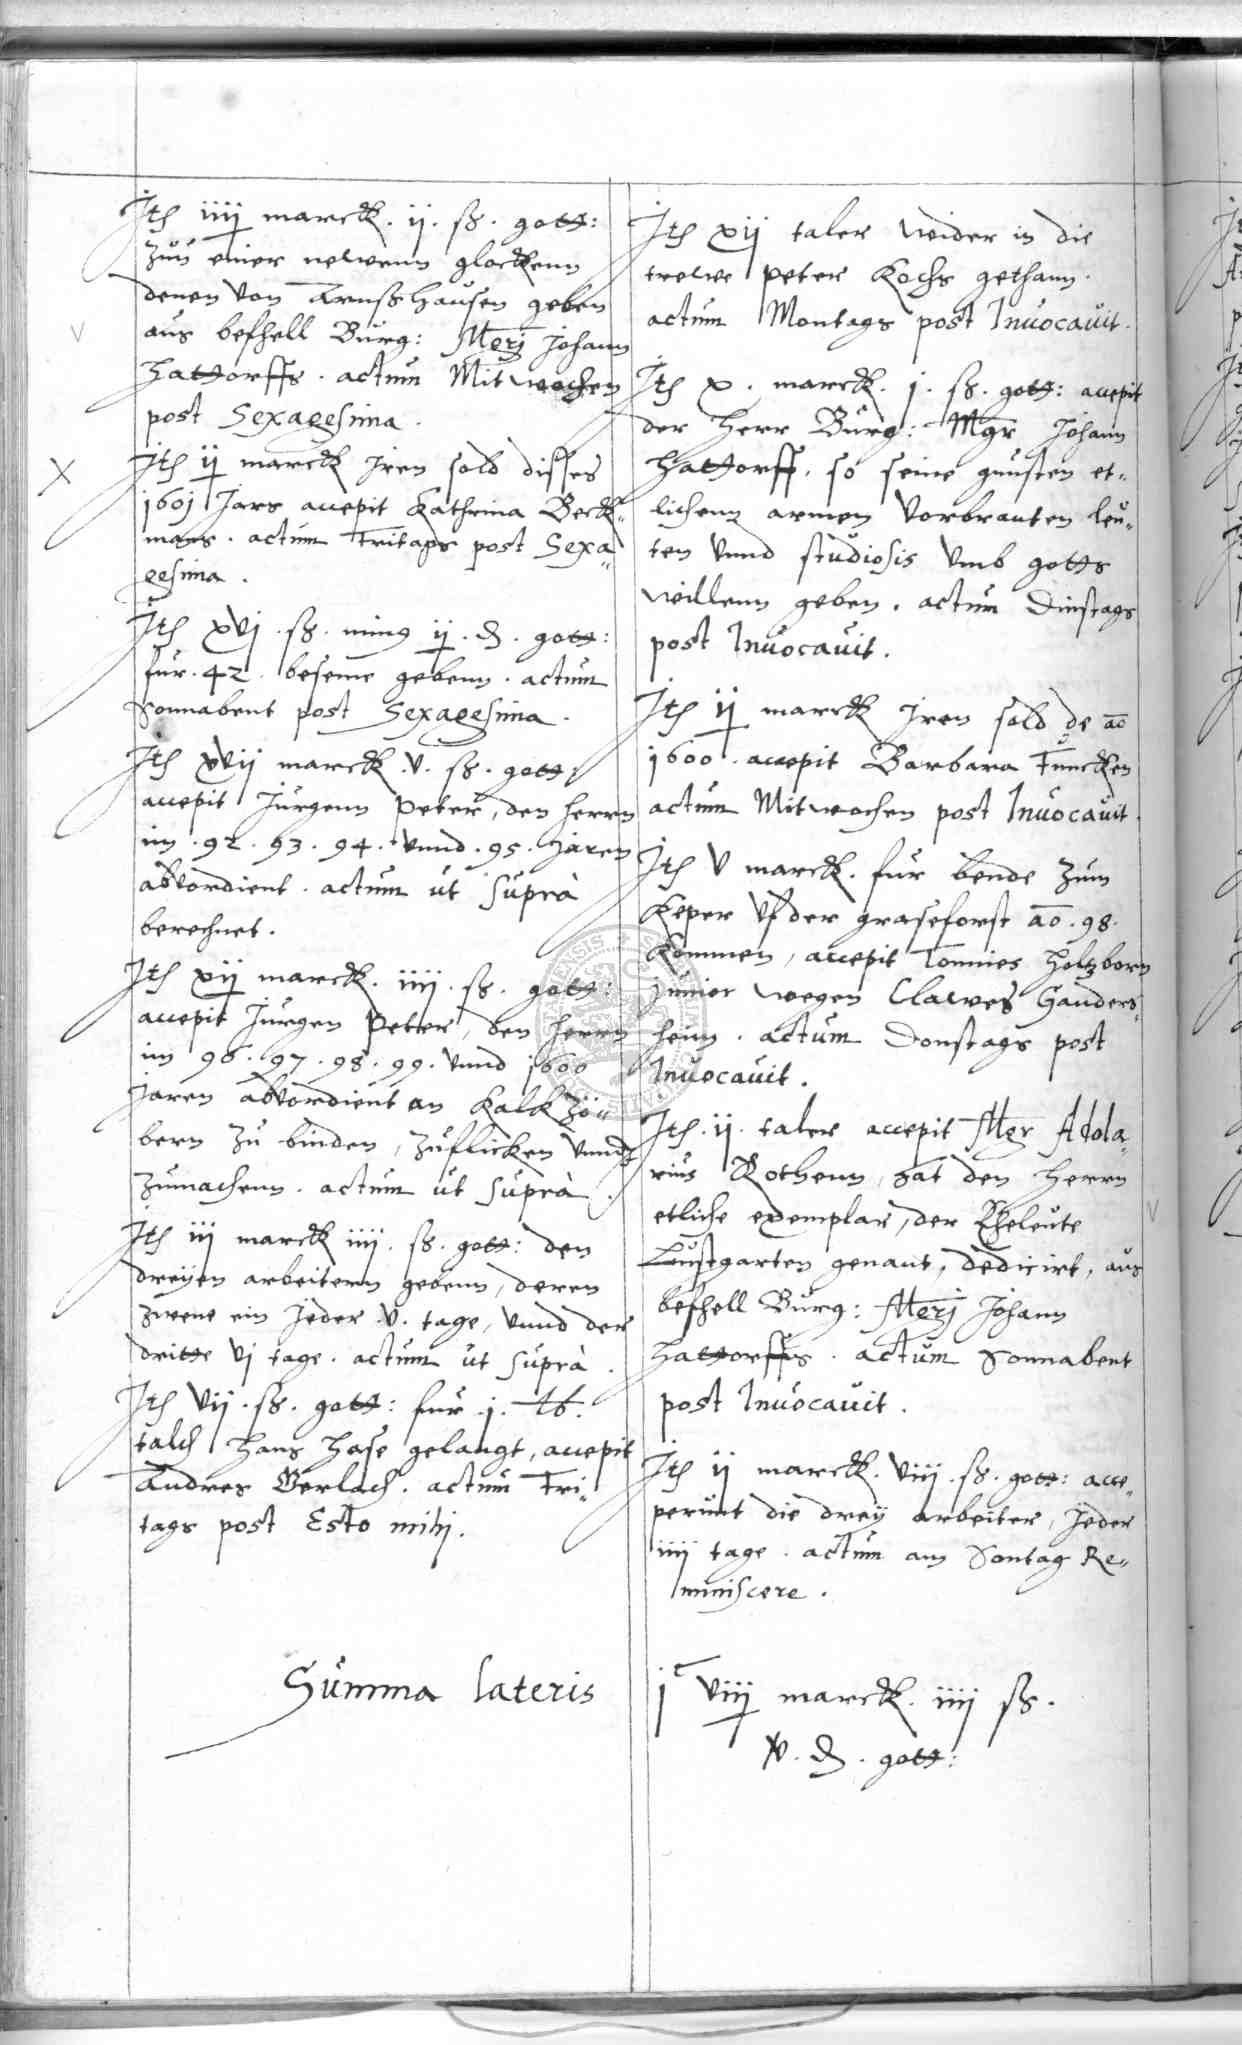 Ite iiij marck. ij. ß. gott:
zu einer newenn glockenn
denen von Arnsshausen geben
aus befhell Burg: Mgrj Johann
Hattorffs. actum Mitwochen
post Sexagesima.
Ite ij marck Jren sold disses
1601 Jars accepit Kathrina Beck„
mans. actum Fritags post Sexa„
gesima.
Ite xvj. ß. ming ij. d. gott:
fur. 42. beseme gebenn. actum
Sonnabent post Sexagesima.
Ite xvij marck. v. ß. gott:
accepit Jurgenn Peter, den herrn
im. 92. 93. 94. vnnd. 95. Jaren
abvordient. actum ut supra
berechnet.
Ite xij marck. iiij. ß. gott:
accepit Jurgen Peter, den herrn
im 96. 97. 98. 99. vnnd 1600
Jaren abvordient an Kalck zö„
bern zu binden, zuflicken vnnd
zumachenn. actum ut suprà.
Ite iij marck iiij. ß. gott: den
dreyen arbeitern gebenn, deren
zwene ein Jeder v. tage, vnnd der
dritte vj tage. actum ut suprà.
Ite vij. ß. gott: fur j. lb.
talch Hans Hase gelangt, accepit
Andres Gerlach. actum Fri„
tags post Esto mihi.
Summa lateris
Ite xij taler wider in die
trewe Peter Kochs gethann.
actum Montags post Invocavit.
Ite x. marck. j. ß. gott: accepit
der Herr Burg: Mgr Johann
Hattorff, so seine gunsten et„
lichenn armen vorbranten leu„
ten vnnd studiosis vmb gotts
willenn geben. actum Dinstags
post Invocavit.
Ite ij marck Jren sold de ao
1600. accepit Barbara Funcken
actum Mitwochen post Invocavit.
Ite v marck. fur bende zum
Keper vf der graseforst ao. 98.
kommen, accepit Tonnies Holtzborn
junior wegen Clawes Ganders„
heim. actum Donstags post
Invocavit.
Ite. ij. taler accepit Mgr Adola„
rius Rothenn, hat den Herrn
etliche exemplar, der Eheleute
Lustgarten genant, dedicirt, aus
befhell Burg: Mgrj Johann
Hattorffs. actum Sonnabent
post Invocavit.
Ite ij marck. viij. ß. gott: acce„
perunt die drey arbeiter, Jeder
iiij tage. actum am Sontag Re„
miniscere.
jc viij marck. iiij ß.
v. d. gott: